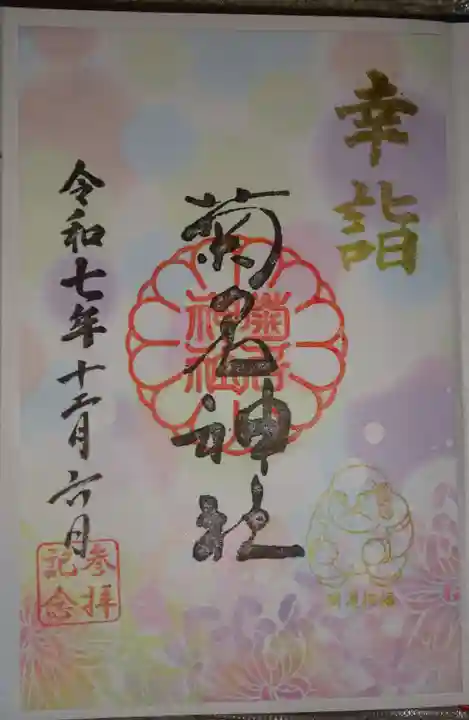 幸詣
菊名神社
菊名
神社
令和七年十二月六日
参拝
記念